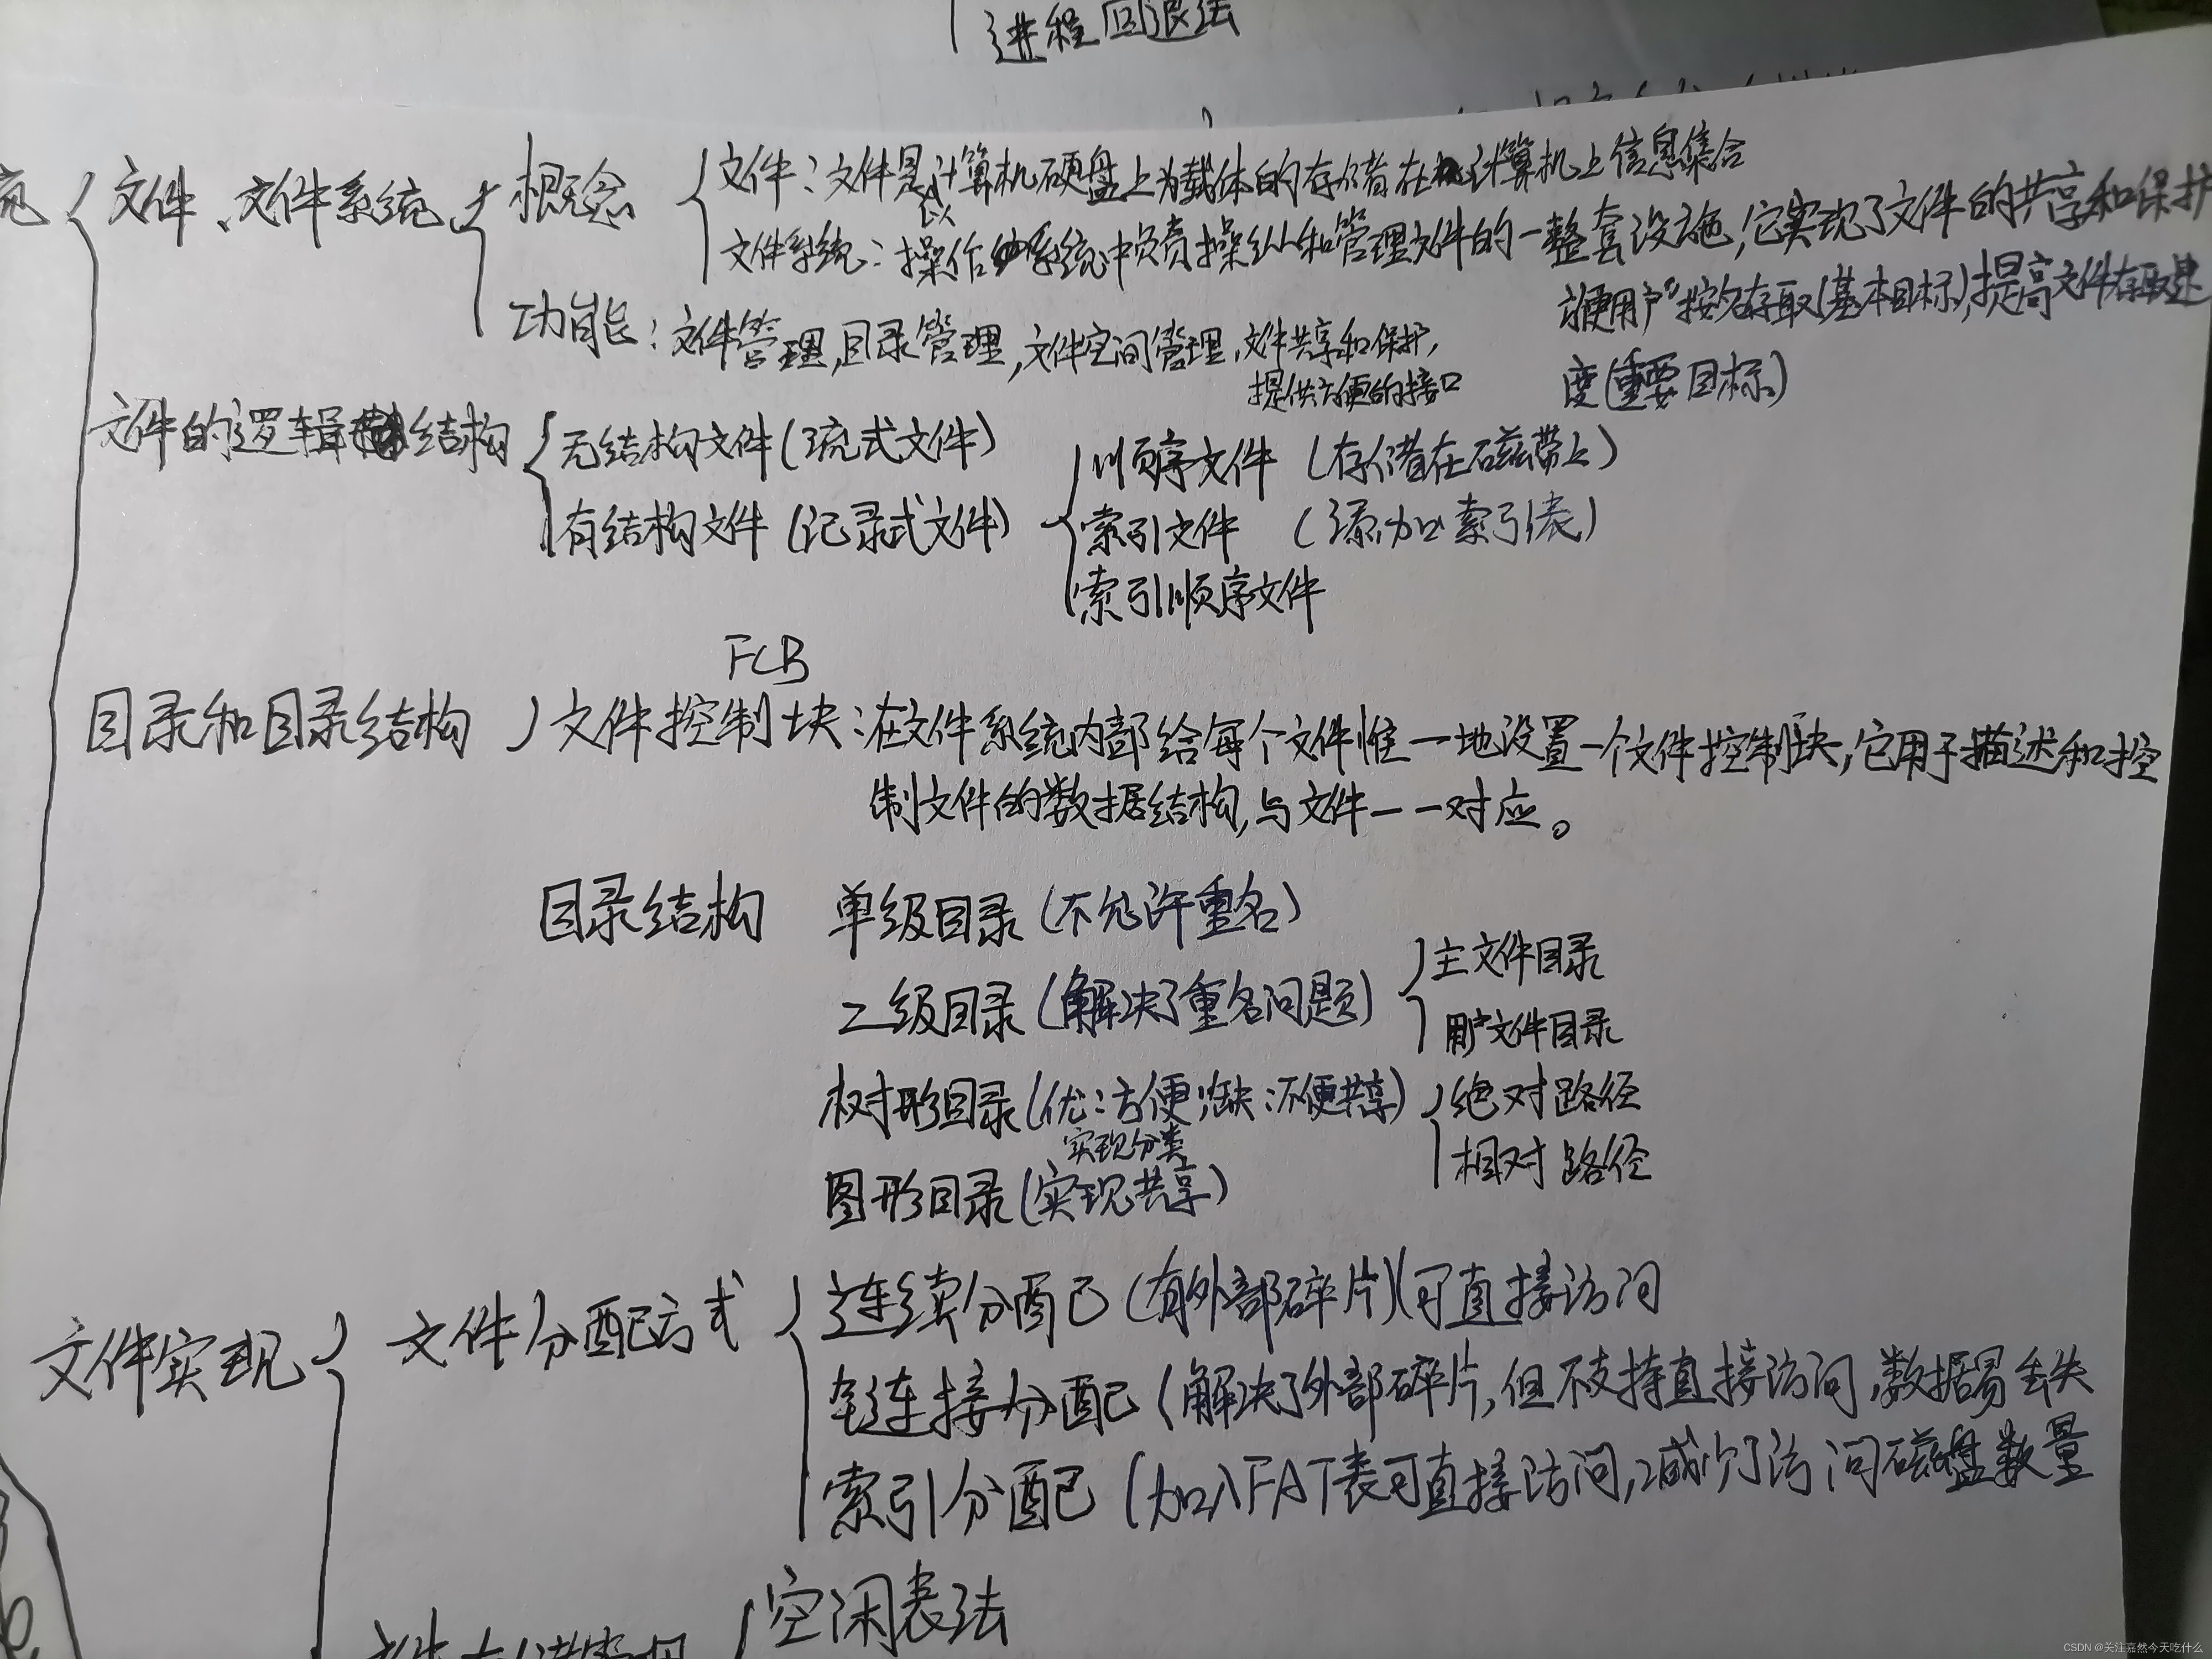 进程回退法
文件、文件系统
概念
文件：文件是以计算机硬盘上为载体的存储在计算机上信息集合
文件系统：操作系统中负责操纵和管理文件的一整套设施，它实现了文件的共享和保护
方便用户"按名存取(基本目标)，提高文件存取速
度(重要目标)
功能：文件管理，目录管理，文件空间管理，文件共享和保护，
提供方便的接口
文件的逻辑结构
无结构文件(流式文件)
有结构文件(记录式文件)
顺序文件(存储在磁带上)
索引文件(添加索引表)
索引顺序文件
FCB
目录和目录结构
文件控制块：在文件系统内部给每个文件惟一地设置一个文件控制块，它用于描述和控
制文件的数据结构，与文件一一对应。
目录结构
单级目录(不允许重名)
二级目录(解决了重名问题)
主文件目录
用户文件目录
树形目录(优：方便，缺：不便共享)
实现分类
绝对路径
相对路径
图形目录(实现共享)
文件实现
文件分配方式
连续分配(有外部碎片)(可直接访问
链接分配(解决了外部碎片，但不支持直接访问，数据易丢失
索引分配(加入FAT表可直接访问，减少了访问磁盘数量
空闲表法
CSDN @关注嘉然今天吃什么